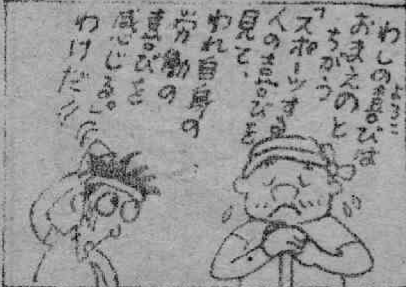 わしの喜びは
よろこ
おまえのと
ちがう
「スポーツする
人の喜びを
見て、
われ自身の
労働の
喜びを
感じる。」
わけだ!!